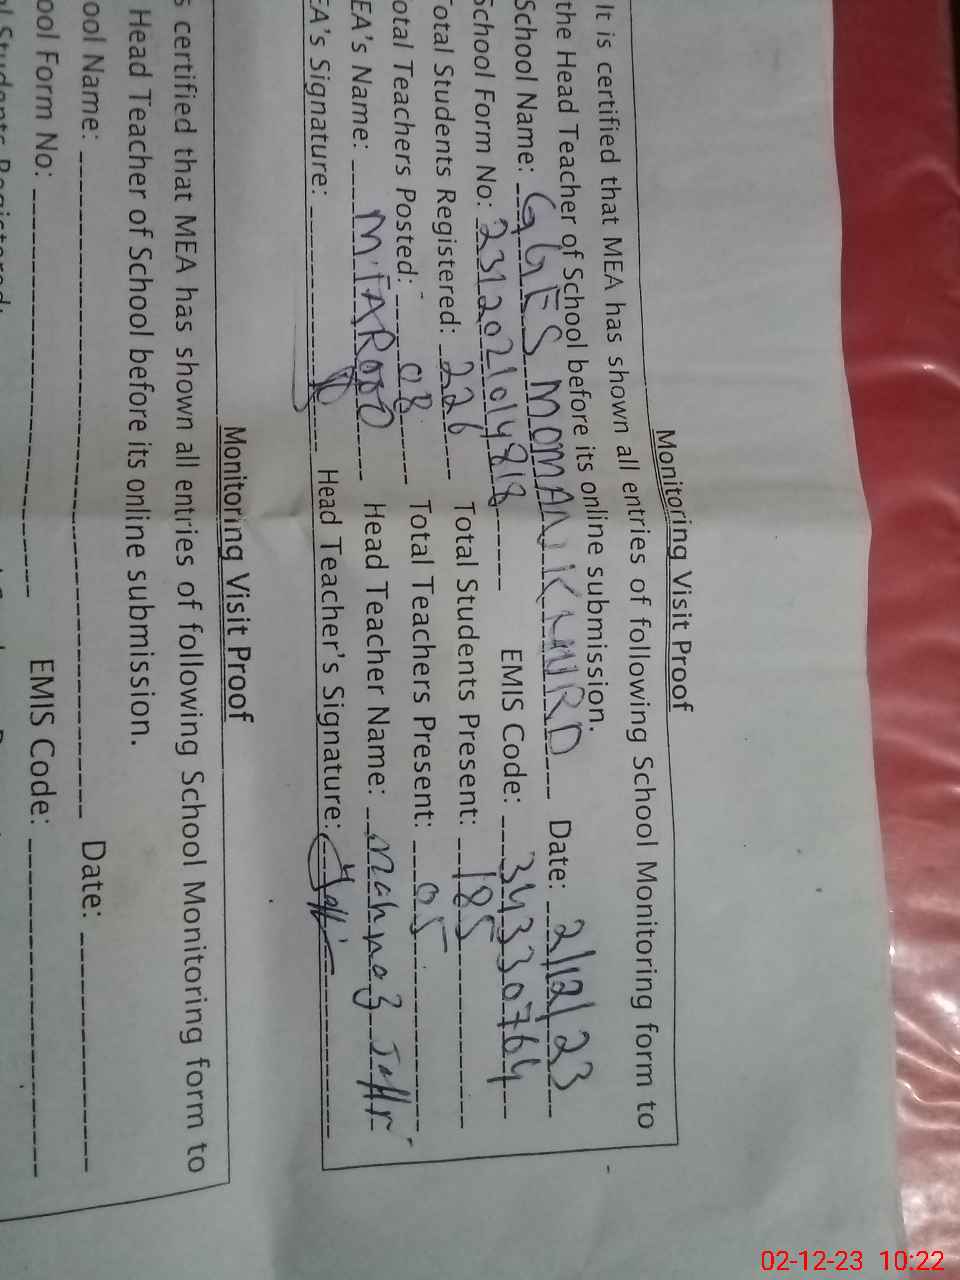 Monitoring Visit Proof
It is certified that MEA has shown all entries of following School Monitoring form to
the Head Teacher of School before its online submission.
School Name: GGES MOMANI KHURD Date: 2/12/23
School Form No: 2312021014818 EMIS Code: 34330764
Total Students Registered: 226 Total Students Present: 185
otal Teachers Posted: 08 Total Teachers Present: 05
EA's Name: M. FAROOQ Head Teacher Name: Mahnaz
EA's Signature: Head Teacher's Signature:
Monitoring Visit Proof
s certified that MEA has shown all entries of following School Monitoring form to
Head Teacher of School before its online submission.
ool Name: Date:
ool Form No: EMIS Code:
ol Students Registered:
02-12-23 10:22